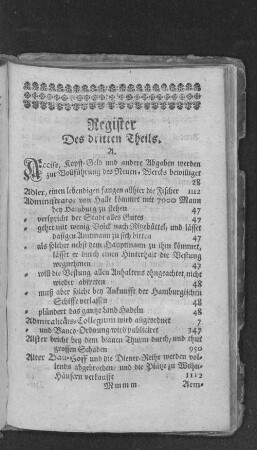 Register
Des dritten Theils.
A.
Accise, Kopff-Geld und andere Abgaben werden
zur Vollführung des Neuen-Wercks bewilliget
28
Adler, einen lebendigen fangen allhier die Fischer 1112
Administrator von Halle kömmet mit 7000 Mann
bey Hamburg zu stehen 47
verspricht der Stadt alles Gutes 47
gehet mit wenig Volck nach Ritzebüttel, und lässet
dasigen Amtmann zu sich bitten 47
als solcher nebst dem Hauptmann zu ihm kömmet,
lässet er durch einen Hinterhalt die Vestung
wegnehmen 47
will die Vestung allen Anhaltens ohngeachtet, nicht
wieder abtreten 48
muß aber solche bey Ankunfft der Hamburgischen
Schiffe verlassen 48
plündert das gantze Land Hadeln 48
Admiralitäts-Collegium wird angeordnet 7
und Banco-Ordnung wird publiciret 347
Alster bricht bey dem blauen Thurm durch, und thut
grossen Schaden 950
Alter Bau-Hoff und die Diener-Reihe werden vol-
lends abgebrochen; und die Plätze zu
Häusern verkaufft 1112
M m m m